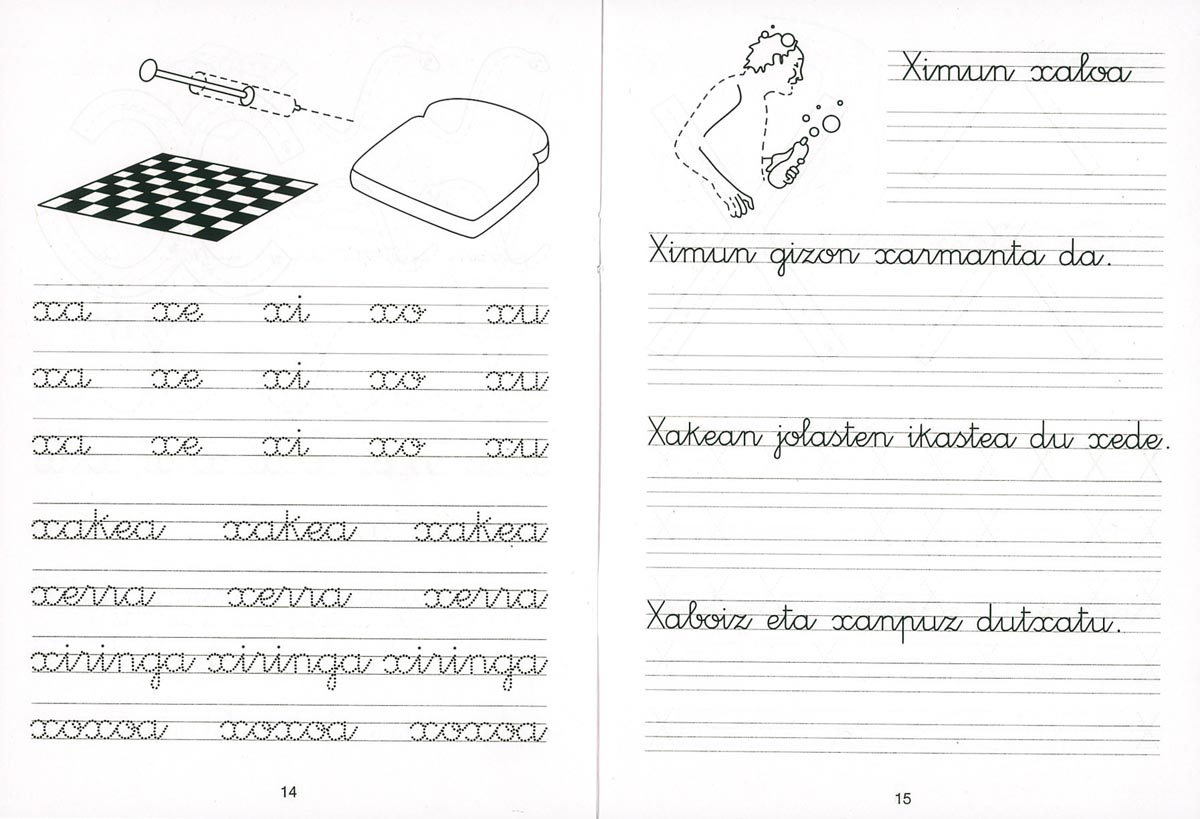 xa xe xi xo xu
xa xe xi xo xu
xa xe xi xo xu
xakea xakea xakea
xerra xerra xerra
xiringa xiringa xiringa
xoxoa xoxoa xoxoa
14
Ximun xaloa
Ximun gizon xarmanta da.
Xakean jolasten ikastea du xede.
Xaboiz eta xanpuz dutxatu.
15